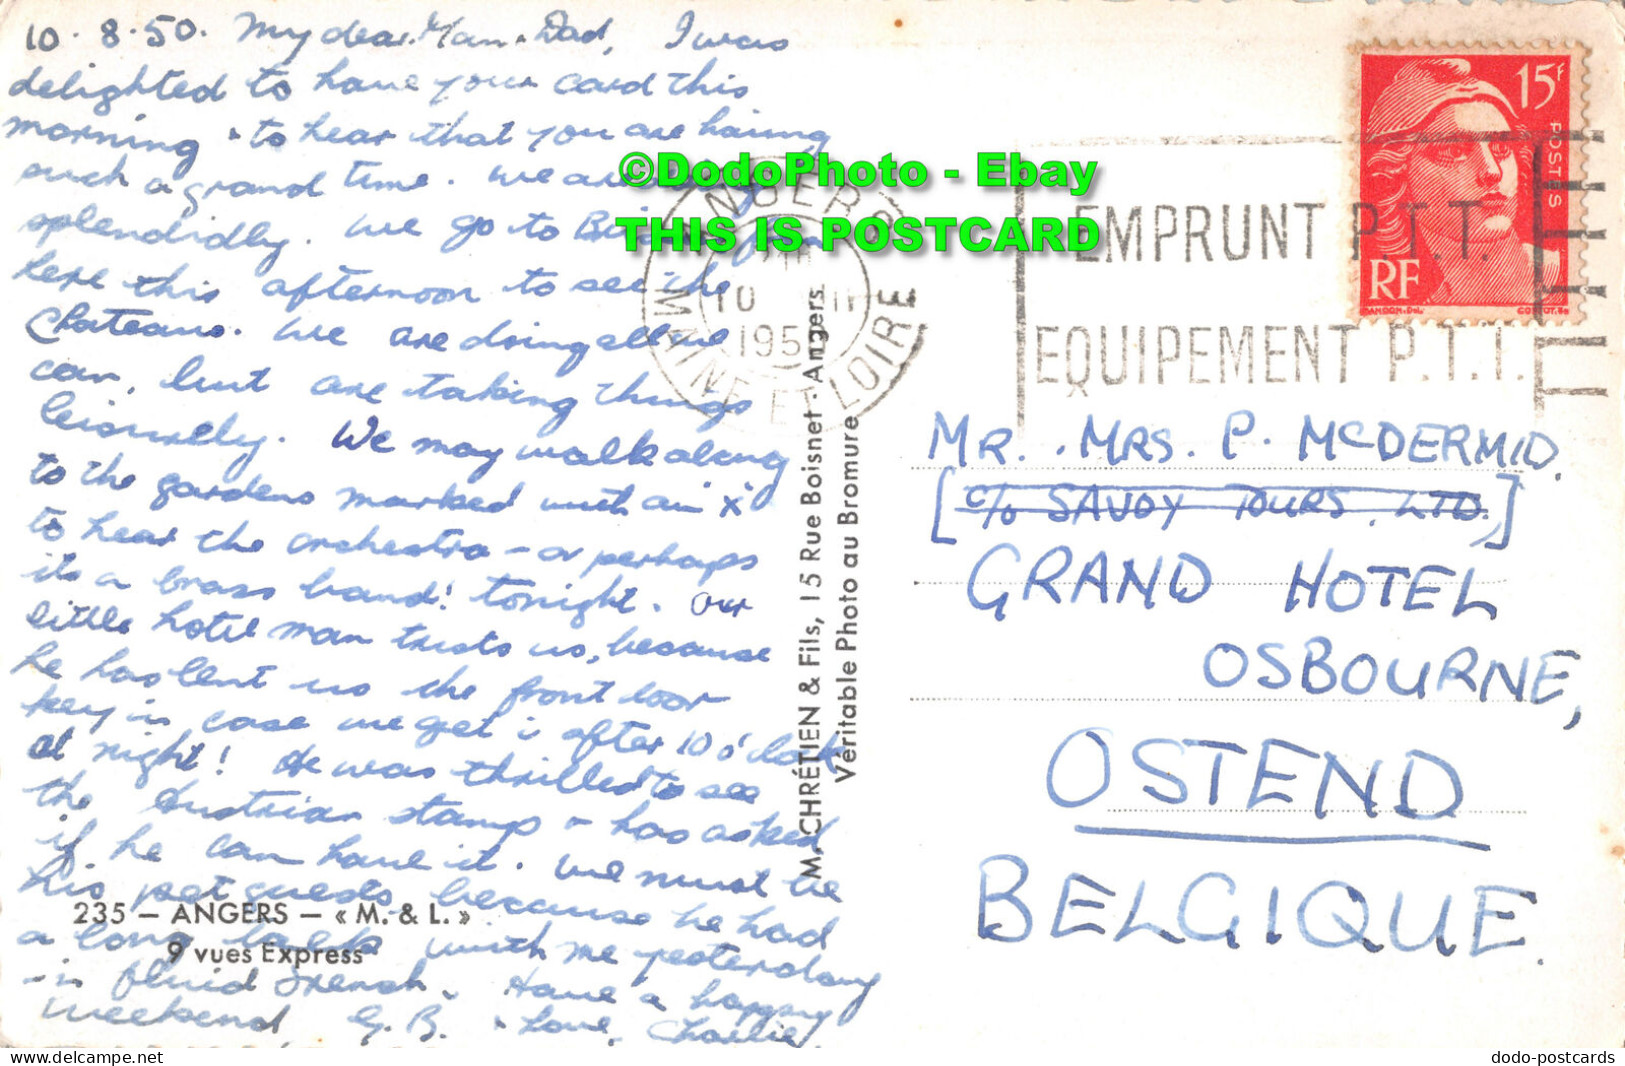 10.8.50. My dear Mam & Dad, I was
delighted to have your card this
morning & to hear that you are having
such a grand time. We are
splendidly. We go to
here this afternoon to see the
Chateau. We are doing all we
can, but are taking things
leisurely. We may walk along
to the gardens marked with an 'x'
to hear the orchestra – or perhaps
its a brass band! tonight. Our
little hotel man trusts us, because
he has lent us the front door
key in case we get in after 10 o'clock
at night! He was thrilled to see
the Austrian stamp & has asked
if he can have it. We must be
his pet guests because he had
a long talk with me yesterday
– in fluid French. Have a happy
weekend, G.B. & Love, Charlie.
235 – ANGERS – « M. & L. »
9 vues Express
M. CHRÉTIEN & Fils, 15 Rue Boisnet - Angers
Véritable Photo au Bromure
©DodoPhoto - Ebay
THIS IS POSTCARD
ANGERS
10
195
MAINE ET LOIRE
EMPRUNT P.T.T.
EQUIPEMENT P.T.T.
15F
POSTES
RF
MR. & MRS. P. MCDERMID.
[c/o SAVOY TOURS, LTD.]
GRAND HOTEL
OSBOURNE,
OSTEND
BELGIQUE.
dodo-postcards